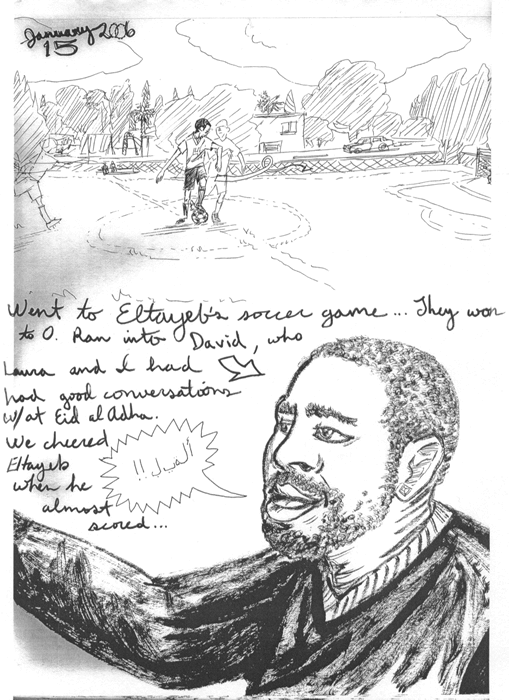 January 2006
15
Went to Eltayeb's soccer game... They won
to 0. Ran into David, who
Laura and I had
had good conversations
w/at Eid al Adha.
We cheered
Eltayeb
when he
almost
scored...